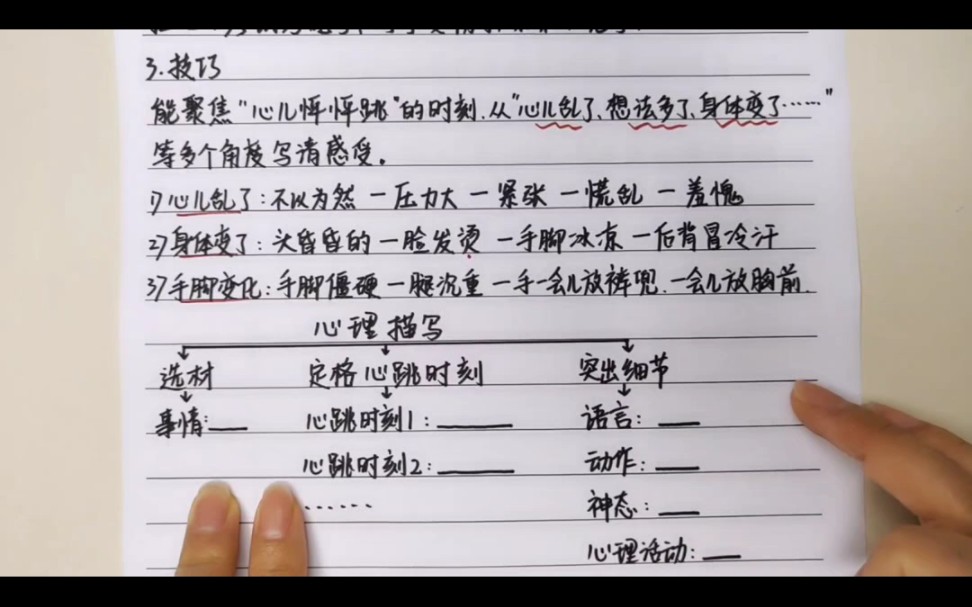 3.技巧
能聚焦“心儿怦怦跳”的时刻,从“心儿乱了、想法多了、身体变了……”
等多个角度写清感受。
1)心儿乱了:不以为然—压力大—紧张—慌乱—羞愧
2)身体变了:头昏昏的—脸发烫—手脚冰凉—后背冒冷汗
3)手脚变化:手脚僵硬—腿沉重—手一会儿放裤兜.一会儿放胸前.
心理描写
选材 定格心跳时刻 突出细节
事情:__ 心跳时刻1:____ 语言:__
心跳时刻2:____ 动作:__
...... 神态:__
心理活动:__